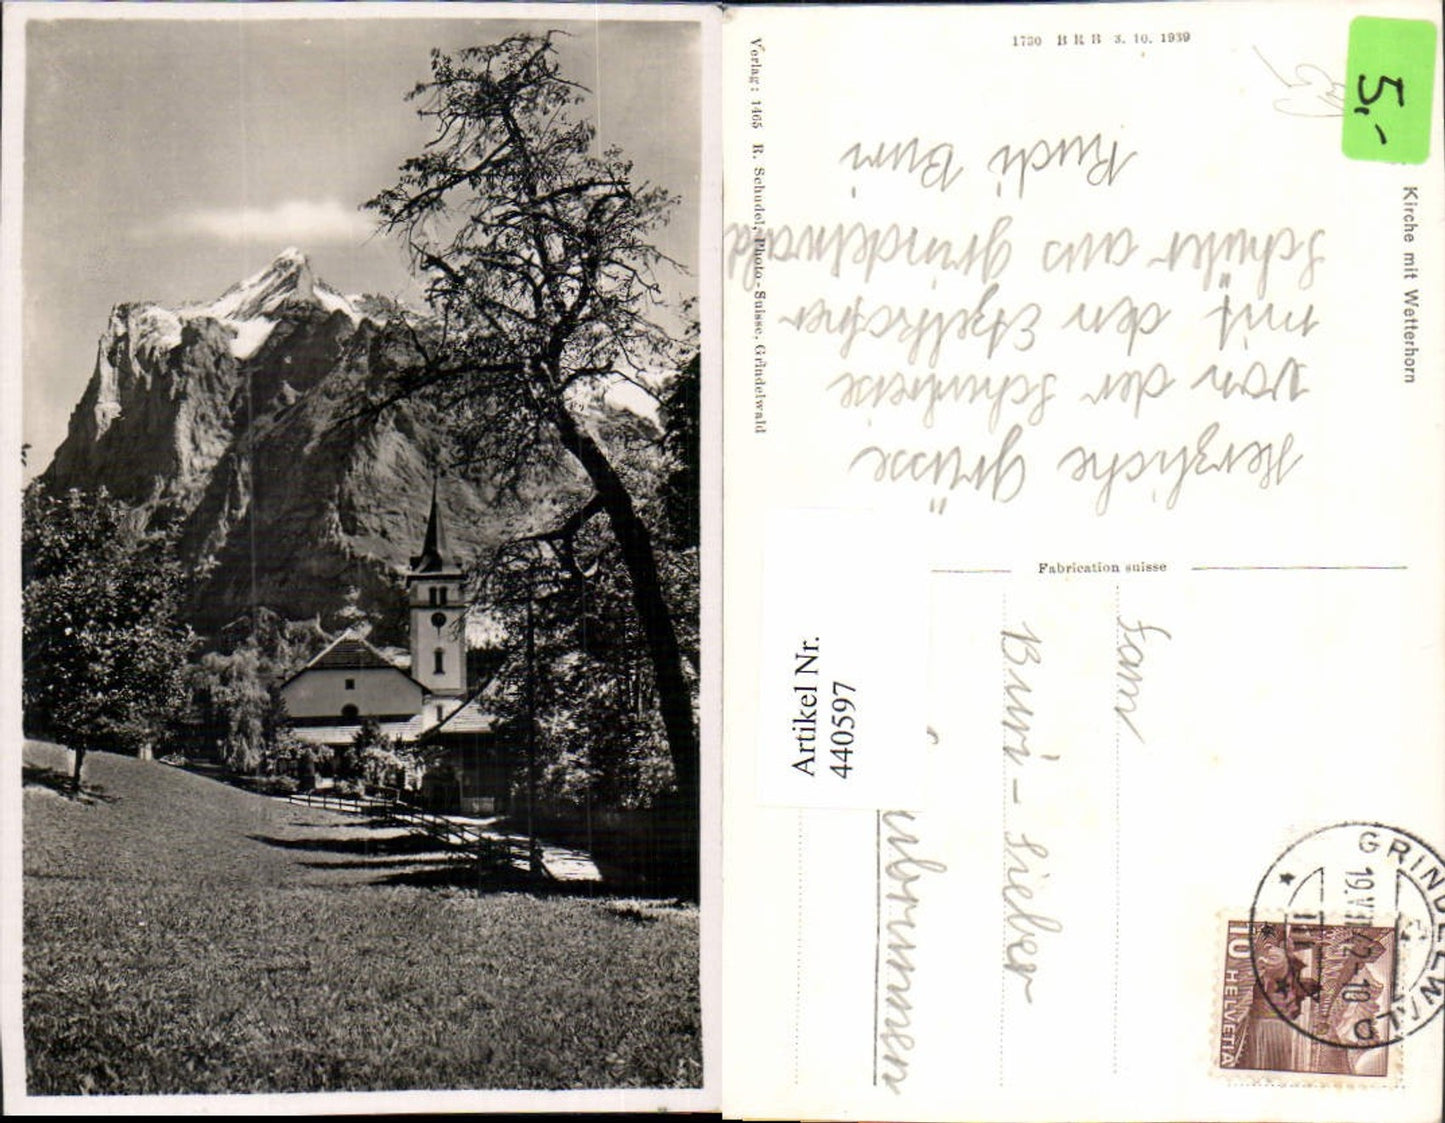 1730 B R B 3. 10. 1939
5,-
Kirche mit Wetterhorn
Verlag: 1465 R. Schudel, Photo-Suisse, Grindelwald
Herzliche Grüsse
von der Schulreise
mit den Etzelkofner
Schüler aus Grindelwald
Rudi Buri
Fabrication suisse
Fam
Buri - Sieber
Artikel Nr.
440597
GRINDELWALD
10 HELVETIA